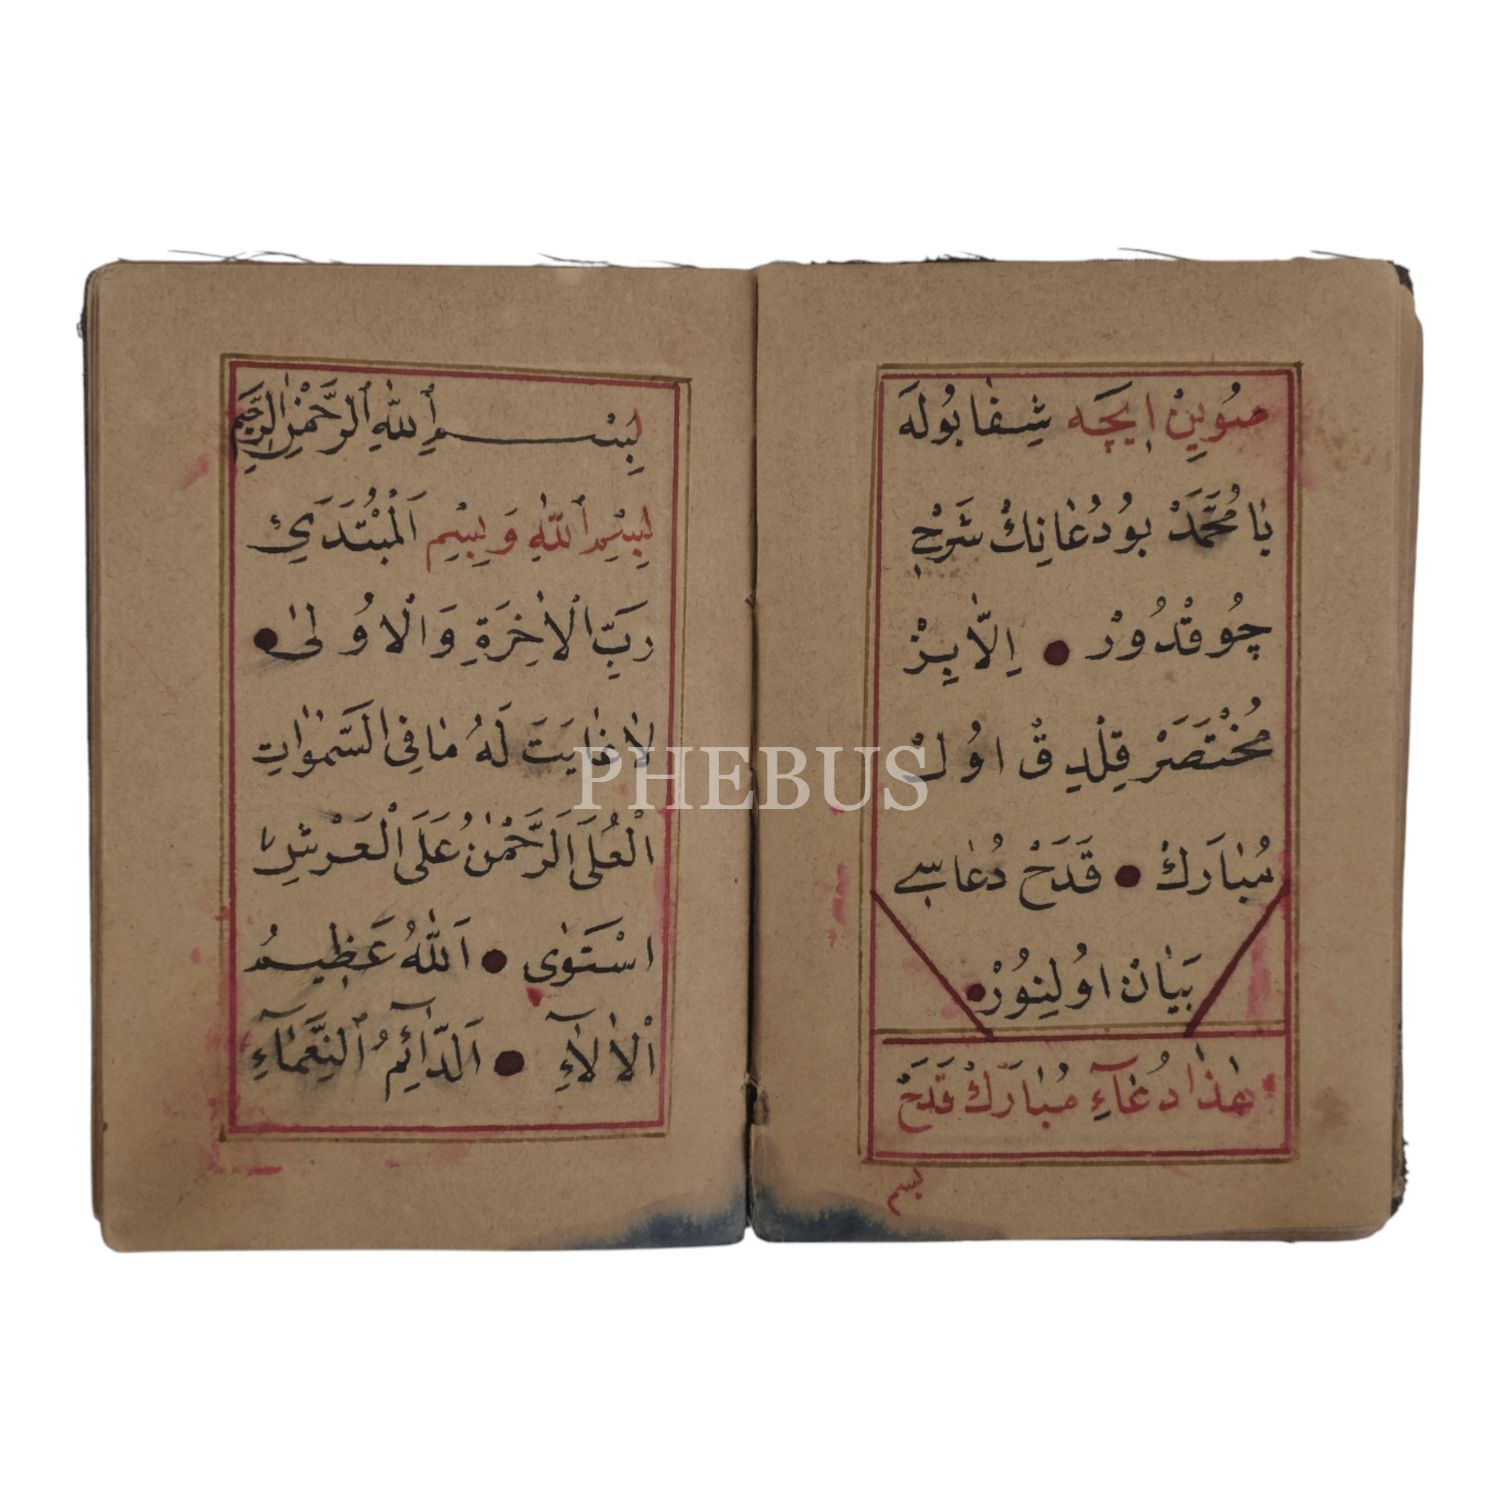 صُوِينْ اِيچَه شِفَا بُولَه
يَا مُحَمَّدْ بُو دُعَانِكْ شَرْحِي
چُوقْدُورْ ● اِلَّا بِزْ
مُخْتَصَرْ قِلْدِقْ اوُلْ
مُبَارَكْ ● قَدَحْ دُعَاسِے
بَيَانْ اوُلِنُورْ ●
هٰذَا دُعَآءِ مُبَارَكْ قَدَحْ
بسم
بِسْمِ اللّٰهِ الرَّحْمٰنِ الرَّحِيمِ
بِسْمِ اللّٰهِ وَبِسْمِ الْمُبْتَدَئِ
رَبِّ الْاٰخِرَةِ وَالْاُولٰى ●
لَا غَايَتَ لَهُ مَا فِي السَّمٰوَاتِ
الْعُلَى اَلرَّحْمٰنُ عَلَى الْعَرْشِ
اسْتَوٰى ● اَللّٰهُ عَظِيمُ
الْاٰلَآءِ ● اَلدَّآئِمُ النَّعْمَآءِ
PHEBUS